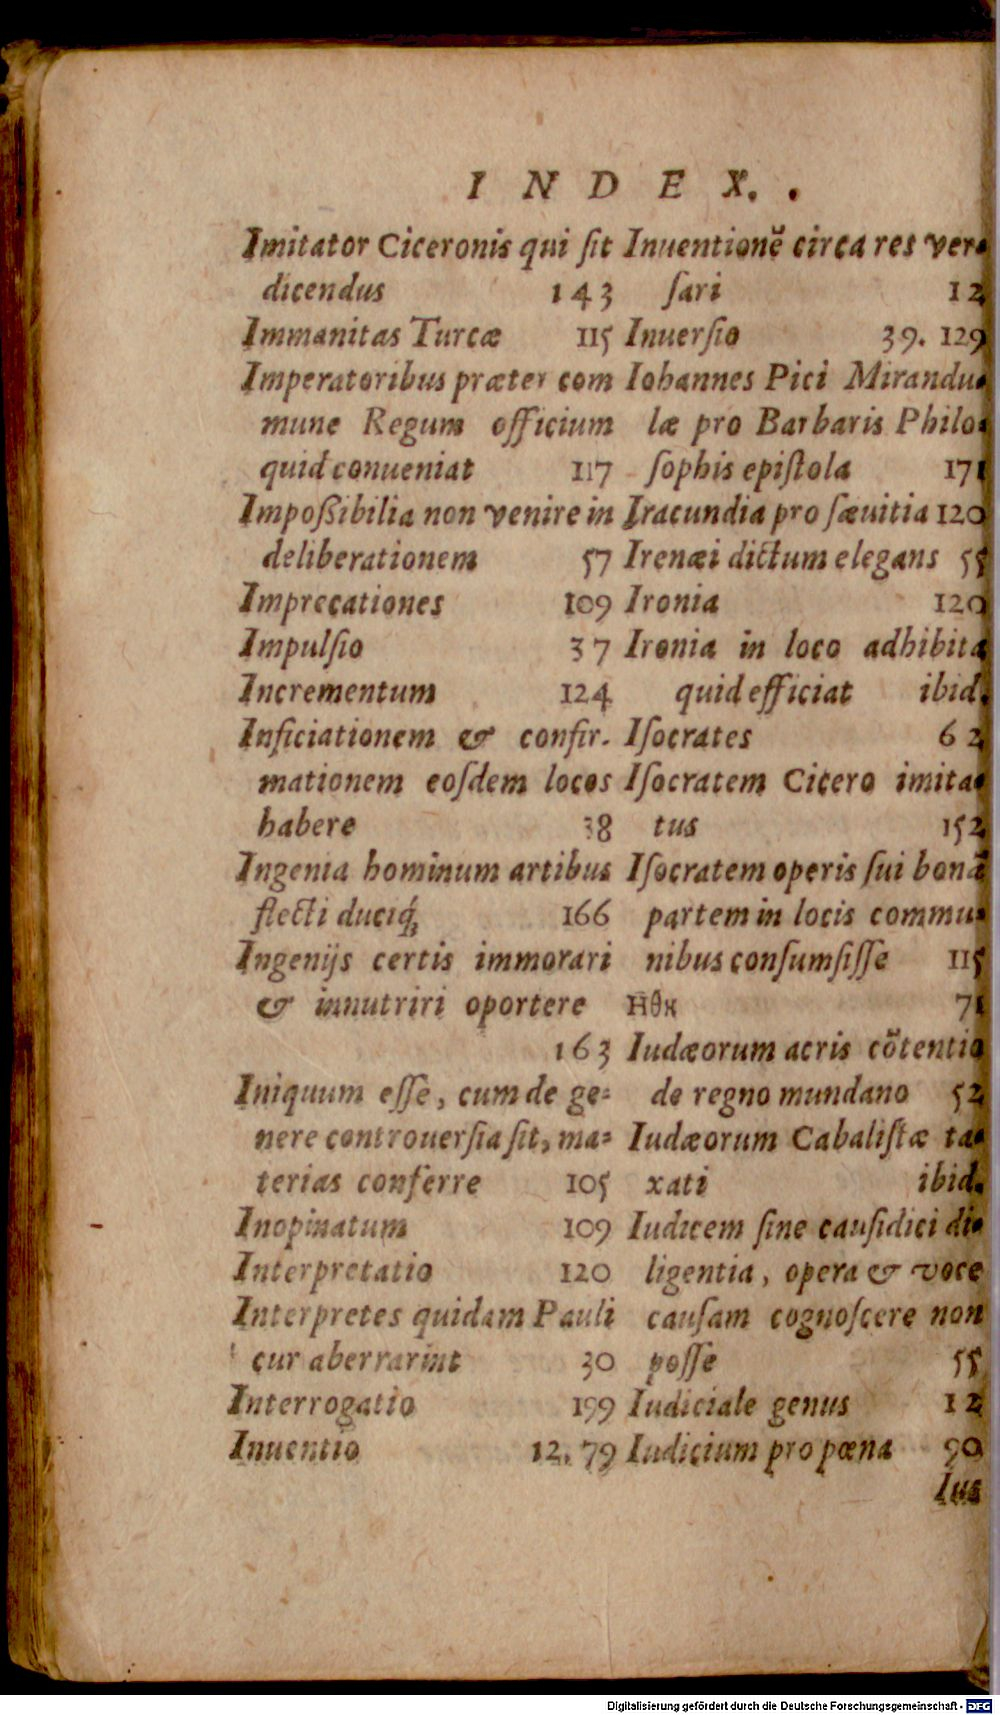 INDEX.
Imitator Ciceronis qui ſit
dicendus 143
Immanitas Turcæ 115
Imperatoribus præter com
mune Regum officium
quid conueniat 117
Impoßibilia non venire in
deliberationem 57
Imprecationes 109
Impulſio 37
Incrementum 124
Inficiationem & confir-
mationem eoſdem locos
habere 38
Ingenia hominum artibus
flecti duciq́; 166
Ingenijs certis immorari
& innutriri oportere
163
Iniquum eſſe, cum de ge-
nere controuerſia ſit, ma-
terias conferre 105
Inopinatum 109
Interpretatio 120
Interpretes quidam Pauli
cur aberrarint 30
Interrogatio 199
Inuentio 12. 79
Inuentionẽ circa res ver-
ſari 12
Inuerſio 39. 129
Iohannes Pici Mirandu-
læ pro Barbaris Philo-
ſophis epiſtola 171
Iracundia pro ſæuitia 120
Irenæi dictum elegans 55
Ironia 120
Ironia in loco adhibita
quid efficiat ibid.
Iſocrates 62
Iſocratem Cicero imita-
tus 152
Iſocratem operis ſui bonã
partem in locis commu-
nibus conſumſiſſe 115
Ηθη 71
Iudæorum acris cõtentio
de regno mundano 52
Iudæorum Cabaliſtæ ta-
xati ibid.
Iudicem ſine cauſidici di-
ligentia, opera & voce
cauſam cognoſcere non
poſſe 55
Iudiciale genus 12
Iudicium pro pœna 90
Ius
Digitalisierung gefördert durch die Deutsche Forschungsgemeinschaft - DFG